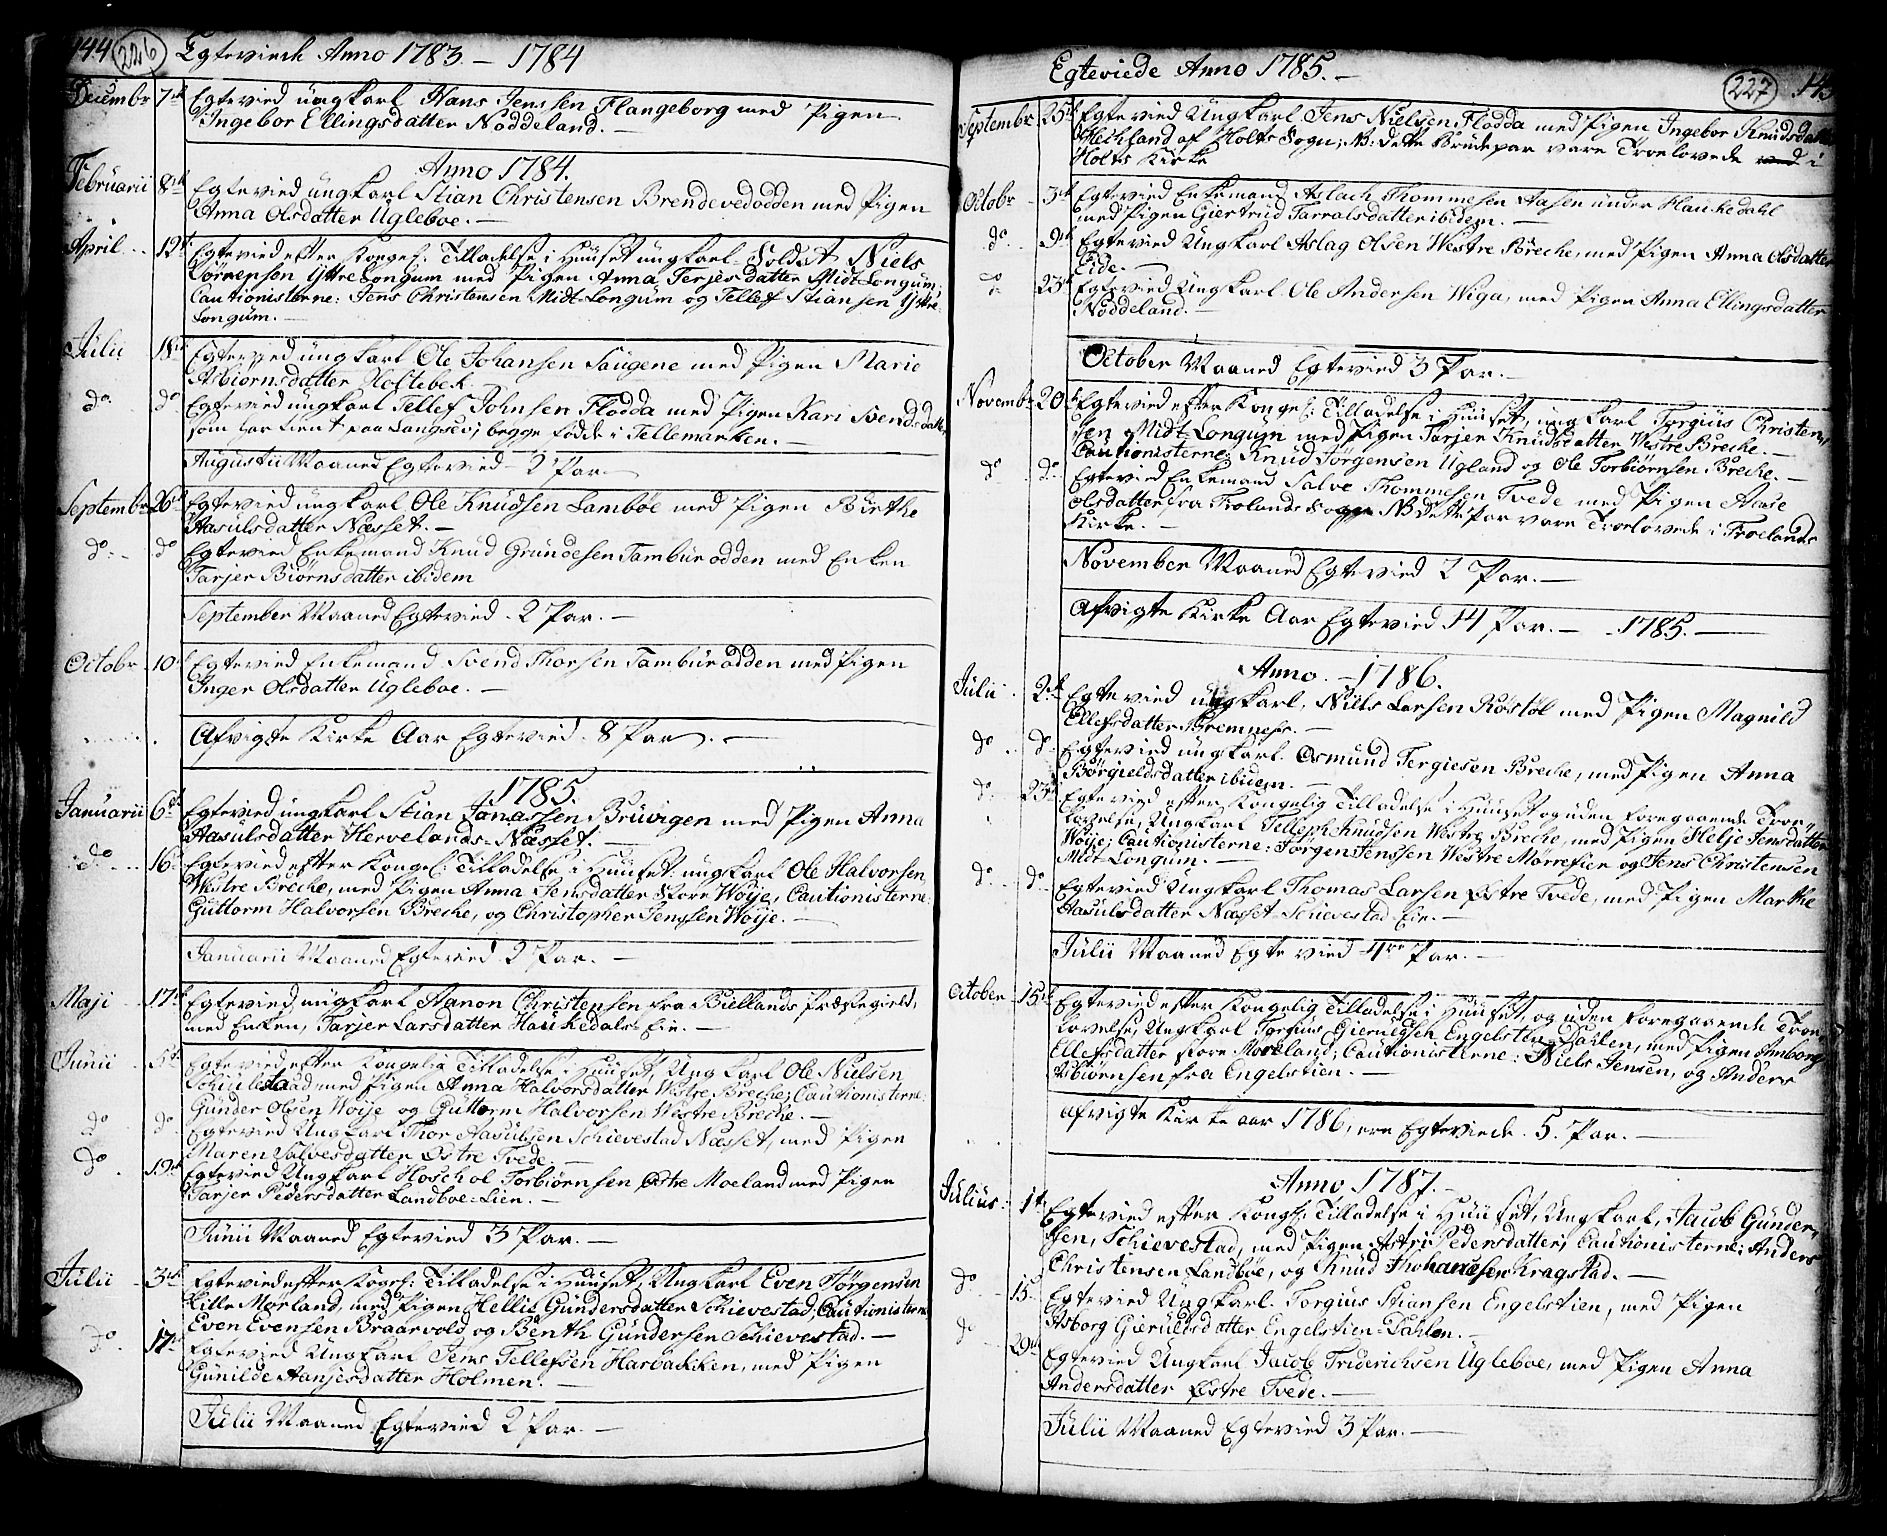 444 226 Egteviede Anno 1783 – 1784
Decembr 7de Egtevied ungkarl Hans Jenssen Flangeborg med Pigen
Ingebor Ellingsdatter Nøddeland. –
Anno 1784.
Februarii 8de Egtevied ungkarl Stian Christensen Brendevedodden med Pigen
Anna Olsdatter Ugleboe. –
April 12te Egtevied efter Kongel: Tilladelse i Huuset ungkarl Soldat Niels
Yttre Longum med Pigen Anna Terjesdatter Midt-Longum;
Cautionisterne: Jens Christensen Midt-Longum og Tellef Stiansen Yttre
Longum. –
Julii 18de Egtevied ungkarl Ole Johansen Saugene med Pigen Marie
Asbiørnsdatter Holtebek
do. do Egtevied ungkarl Tellef Johnsen Flodda med Pigen Kari Svendsdatter
som har tient paa Langsev; begge fødde i Tellemarken. –
Augustii Maaned Egtevied 2 Par –
Septembr 26de Egtevied ungkarl Ole Knudsen Lambøe med Pigen Birthe
Aasulsdatter Næsset. –
do. – do Egtevied Enkemand Knud Grundesen Tamburodden med Enken
Tarjer Biørnsdatter ibidem
September Maaned Egtevied 2 Par. –
Octobr 10de Egtevied Enkemand Svend Thorsen Tamburodden med Pigen
Inger Olsdatter Ugleboe. –
Afvigte Kirke Aar Egtevied 8 Par. –
1785.
Januarii 6te Egtevied ungkarl Stian Jonassen Bruvigen med Pigen Anna
Aasulsdatter Hervelands-Næsset. –
do 16de Egtevied efter Kongel: Tilladelse i Huuset ungkarl Ole Halvorsen
Westre Breche, med Pigen Anna Jensdatter Store Woije, Cautionisterne:
Guttorm Halvorsen Breche, og Christopher Jenssen Woije. –
Januarii Maaned Egtevied 2 Par. –
Maji 17de Egtevied ungkarl Aanon Christensen fra Biellands Præstegield,
med Enken, Tarjer Larsdatter Haukedals Eie. –
Junii 5te Egtevied efter Kongelig Tilladelse i Huuset, Ungkarl Ole Nielsen
med Pigen Anna Halvorsdatter Westre Breche; Cautionisterne:
Gunder Olsen Woije og Guttorm Halvorsen Westre Breche. –
do do Egtevied Ungkarl Thor Aasulssen Schievestad Næsset, med Pigen
Maren Salvesdatter Østre Tvede. –
do. 19de Egtevied Ungkarl Hoschol Torbiørnsen Østre Moeland med Pigen
Tarjer Pedersdatter Landboe-Lien. –
Junii Maaned Egtevied 3 Par. –
Julii 3die Egtevied efter Kogel: Tilladelse i Huuset, Ungkarl Even Jørgensen
Lille Mørland, med Pigen Hellie Gundersdatter Schievestad, Cautionisterne
Even Evensen Braarvold og Benth Gundersen Schievestad. –
do. 17de Egtevied Ungkarl Jens Tellefsen Harbakken, med Pigen
Gunilde Aanjesdatter Holmen. –
Julii Maaned Egtevied 2 Par. –
Egteviede Anno 1785. –
227
Septembr 25de Egtevied Ungkarl Jens Nielsen Flodda med Pigen Ingebor Knudsdatter
af Holts Sogn; NB. dette Brudepar vare Troelovede i
Holts Kirke
Octobr 3de Egtevied Enkemand Aslach Thommesen Aasen under Haukedahl
med Pigen Giertrud Tarralsdatter ibidem. –
do. 9de Egtevied Ungkarl Aslag Olsen Westre Breche, med Pigen Anna Olsdatter
Eide. –
do 23de Egtevied Ungkarl Ole Andersen Wiga, med Pigen Anna Ellingsdatter
Nøddeland. –
October Maaned Egtevied 3 Par. –
Novembr 20de Egtevied efter Kongel: Tilladelse i Huuset, ungkarl Torgius Christen-
sen Midt-Longum med Pigen Tarjer Knudsdatter Westre Breche. –
Cautionisterne; Knud Jørgensen Ugland og Ole Torbiørnsen Breche. –
do do Egtevied Enkemand Salve Thommesen Tvede med Pigen Aase
Olsdatter fra Frolands Sogn NB dette Par vare Troelovede i Froelands
Kirke. –
November Maaned Egtevied 2 Par. –
Afvigte Kirke Aar Egtevied 14 Par. – 1785. –
Anno – 1786.
Julii 2de Egtevied ungkarl, Niels Larsen Røstøl med Pigen Magnild
Ellefsdatter Bremnes. –
do do Egtevied ungkarl Osmund Tergiesen Breche, med Pigen Anna
Børgieldsdatter ibidem. –
do. 23de Egtevied efter Kongelig Tilladelse i Huuset og uden foregaaende Troe-
lovelse, Ungkarl Telleph Knudsen Westre Breche, med Pigen Helje Jensdatter
Woije; Cautionisterne: Jørgen Jenssen Westre Mørrefier og Jens Christensen
Midt-Longum. –
do. do Egtevied Ungkarl Thomas Larsen Østre Tvede, med Pigen Marthe
Aasulsdatter Næsset Schievestad Eie. –
Julii Maaned Egtevied 4re Par. –
October 15de Egtevied efter Kongelig Tilladelse i Huuset, og uden foregaaende Troe-
lovelse, Ungkarl Torius Gieruldsen Engelstien-Dahlen, med Pigen Anborg
Ellefsdatter store Moeland; Cautionisterne: Niels Jensen, og Anders
Asbiørnsen fra Engelstien. –
Afvigte Kirke aar 1786, ere Egteviede 5. Par. –
Anno 1787. –
Julius 1te Egtevied efter Kongl: Tilladelse i Huuset, Ungkarl, Jacob Gunder-
sen, Schievestad, med Pigen Astri Pedersdatter; Cautionisterne: Anders
Christensen Landbøe, og Knud Thohannesen Kragstad. –
do 15 Egtevied Ungkarl Torgius Stiansen Engelstien, med Pigen
Asborg Gieruldsdatter Engelstien-Dahlen. –
do 29de Egtevied Ungkarl Jacob Friderichsen Ugleboe, med Pigen Anna
Andersdatter Østre Tvede. –
Julii Maaned Egtevied 3 Par. –